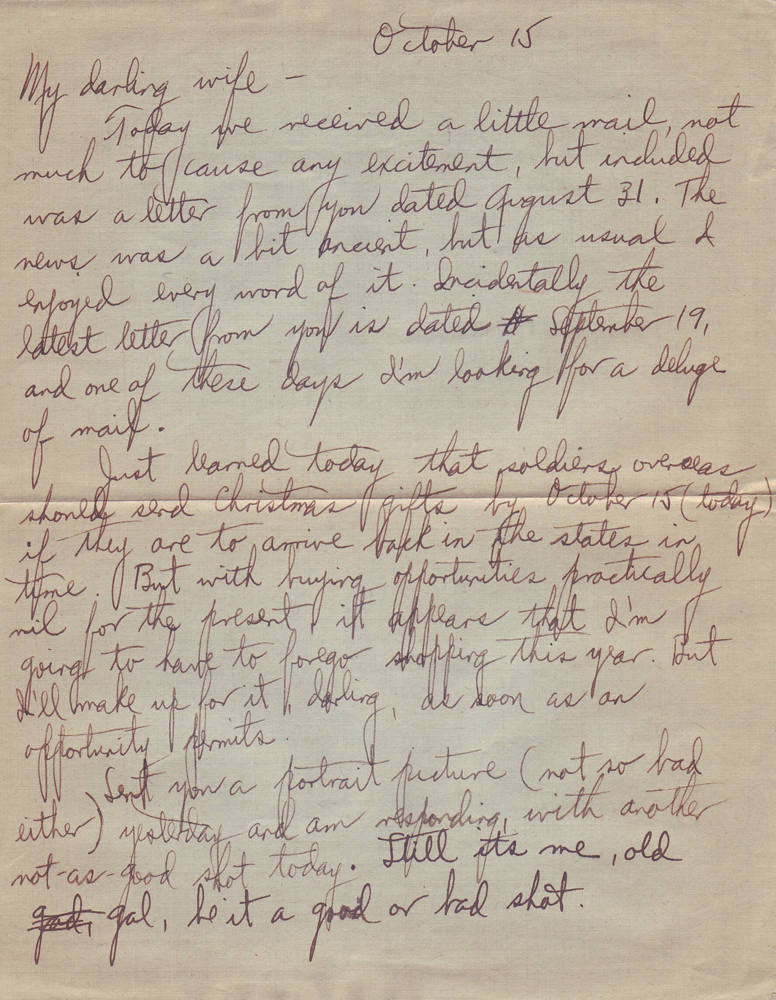 October 15
My darling wife –
Today we received a little mail, not
much to cause any excitement, but included
was a letter from you dated August 31. The
news was a bit ancient, but as usual I
enjoyed every word of it. Incidentally the
latest letter from you is dated September 19,
and one of these days I'm looking for a deluge
of mail.
Just learned today that soldiers overseas
should send Christmas gifts by October 15 (today)
if they are to arrive back in the states in
time. But with buying opportunities practically
nil for the present, it appears that I'm
going to have to forego shopping this year. But
I'll make up for it, darling, as soon as an
opportunity permits.
Sent you a portrait picture (not so bad
either) yesterday and am responding, with another
not-as-good shot today. Still its me, old
gal, be it a good or bad shot.